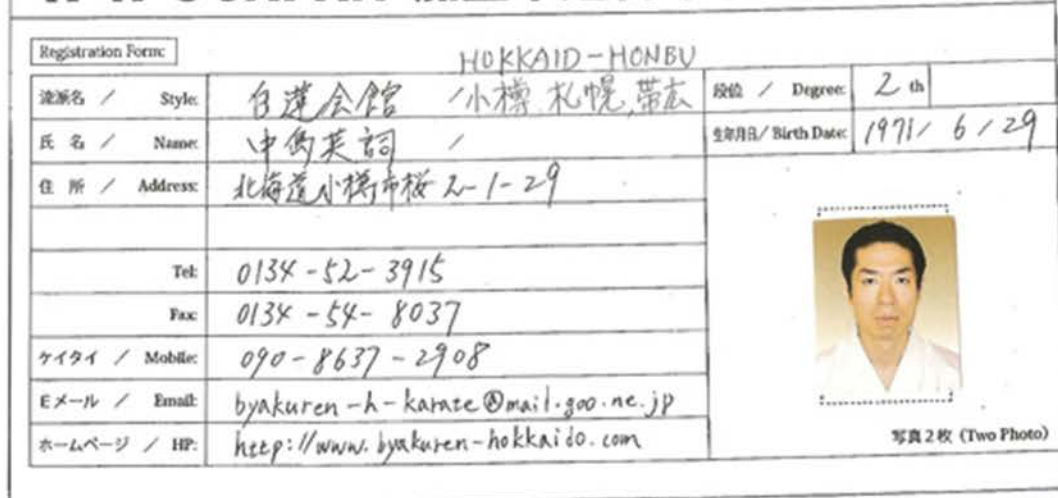 Registration Form:
HOKKAID-HONBU
流派名 / Style: 白蓮会館 /小樽,札幌,帯広 段位 / Degree: 2 th
氏 名 / Name: 中島英詞 / 生年月日/ Birth Date: 1971/ 6 / 29
住 所 / Address: 北海道小樽市桜 2-1-29
Tel: 0134-52-3915
Fax: 0134-54-8037
ケイタイ / Mobile: 090-8637-2908
Eメール / Email: byakuren-h-karate@mail.goo.ne.jp
ホームページ / HP: http://www.byakuren-hokkaido.com
写真2枚 (Two Photo)